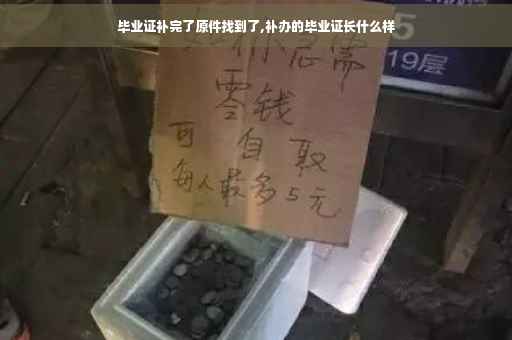 毕业证补完了原件找到了,补办的毕业证长什么样
如你急需
零钱
可自取
每人最多5元
5
19层